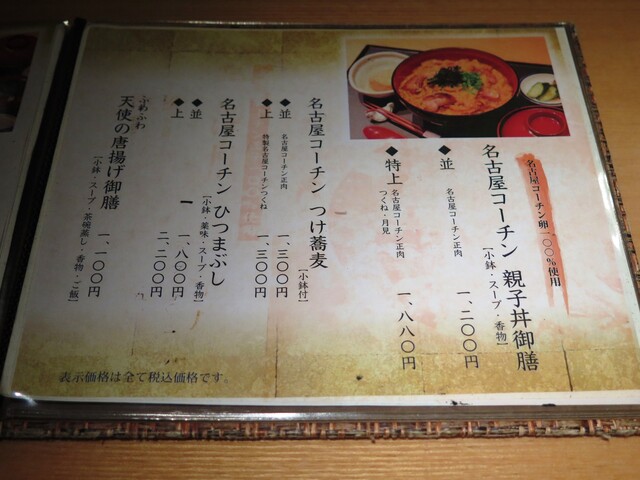 名古屋コーチン卵一〇〇％使用
名古屋コーチン 親子丼御膳
［小鉢・スープ・香物］
◆並 名古屋コーチン正肉 一、二〇〇円
◆特上 名古屋コーチン正肉
つくね・月見 一、八八〇円
名古屋コーチン つけ蕎麦
［小鉢付］
◆並 名古屋コーチン正肉 一、三〇〇円
◆上 特製名古屋コーチンつくね 一、三〇〇円
名古屋コーチン ひつまぶし
［小鉢・薬味・スープ・香物］
◆並 一、八〇〇円
◆上 二、二〇〇円
ふわふわ
天使の唐揚げ御膳
［小鉢・スープ・茶碗蒸し・香物・ご飯］
一、一〇〇円
表示価格は全て税込価格です。